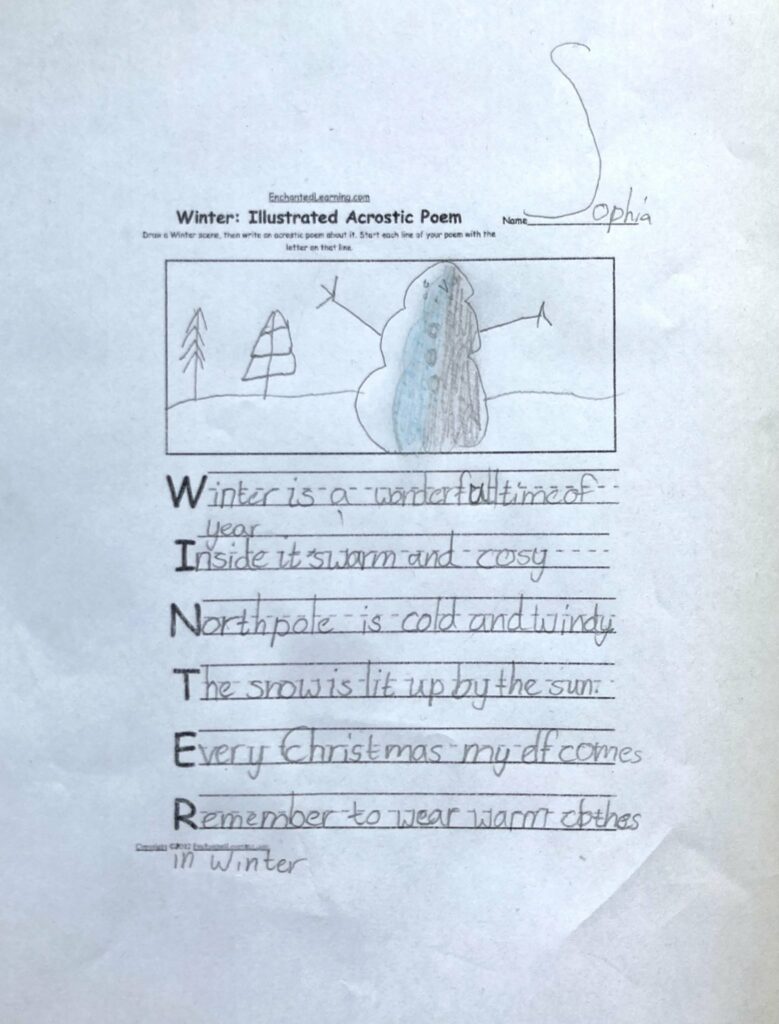 EnchantedLearning.com
Winter: Illustrated Acrostic Poem
Name Sophia
Draw a Winter scene, then write an acrostic poem about it. Start each line of your poem with the
letter on that line.
Winter is a wonderfull time of
year
Inside it's warm and cosy
North pole is cold and windy
The snow is lit up by the sun.
Every Christmas my elf comes
Remember to wear warm clothes
Copyright ©2012 EnchantedLearning.com
in Winter